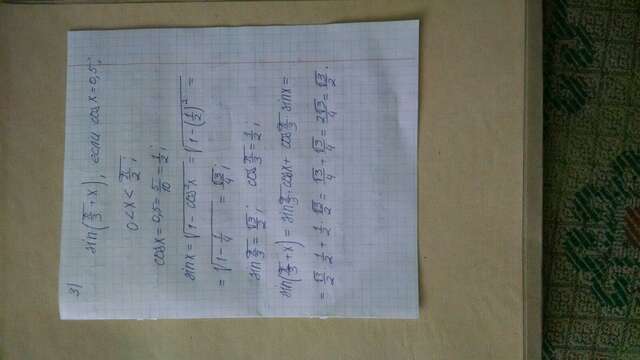 3)
sin(π/3 + x), если cosx = 0,5;
0 < x < π/2;
cosx = 0,5 = 5/10 = 1/2;
sinx = √(1 - cos²x) = √(1 - (1/2)²) =
= √(1 - 1/4) = √3/4;
sin π/3 = √3/2; cos π/3 = 1/2;
sin(π/3 + x) = sin π/3 · cosx + cos π/3 · sinx =
= √3/2 · 1/2 + 1/2 · √3/2 = √3/4 + √3/4 = 2√3/4 = √3/2;